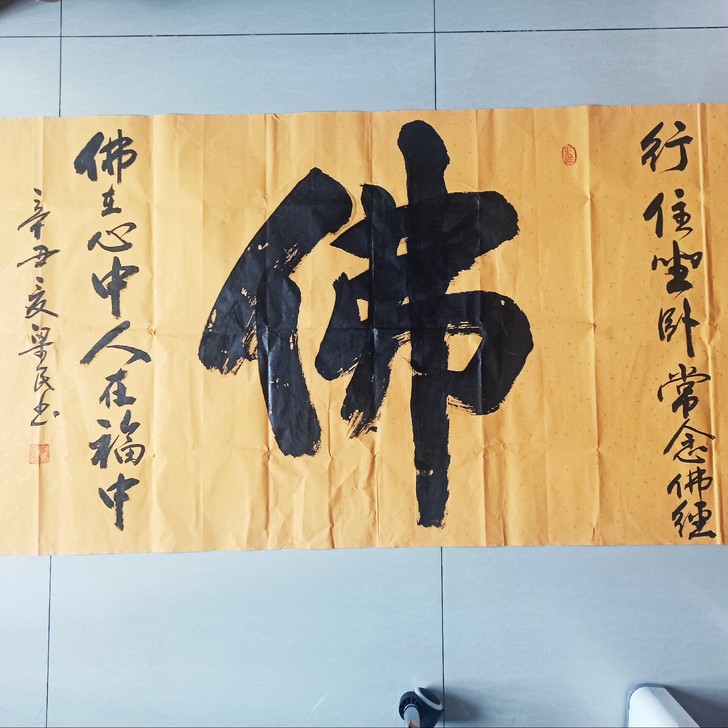 行住坐卧常念佛經
佛
佛在心中人在福中
辛丑夏梁民书